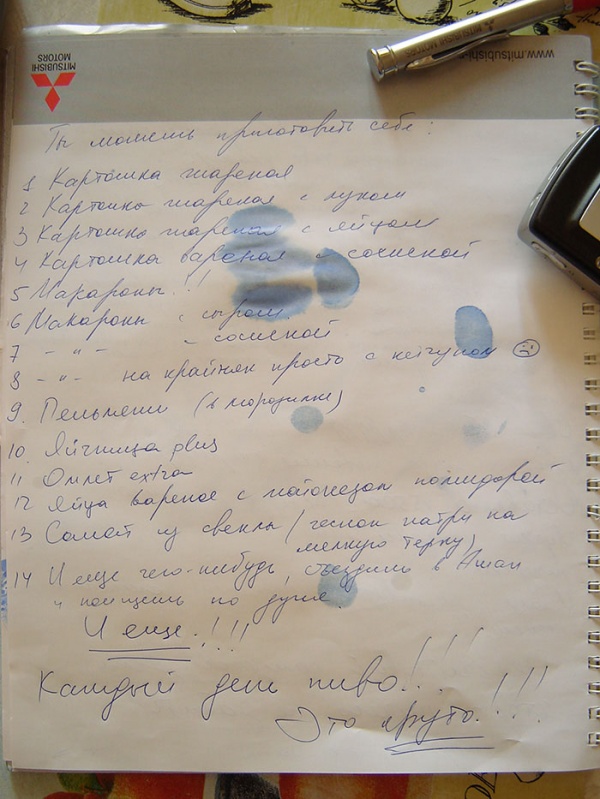 MITSUBISHI
MOTORS
www.mitsubishi-
Ты можешь приготовить себе:
1 Картошка жареная
2 Картошка жареная с луком
3 Картошка жареная с яйцом
4 Картошка вареная с сосиской
5 Макароны!!
6 Макароны с сыром
7 - " - с сосиской
8 - " - на крайняк просто с кетчупом
9. Пельмени (в морозилке)
10. Яичница plus
11 Омлет extra
12 Яйца вареные с майонезом помидорой
13 Салат из свеклы (чеснок натри на
мелкую терку)
14 И еще чего-нибудь, съездишь в Ашан
и поищешь по душе.
И еще!!!!
Каждый день пиво!...!!!
Это круто.!!!